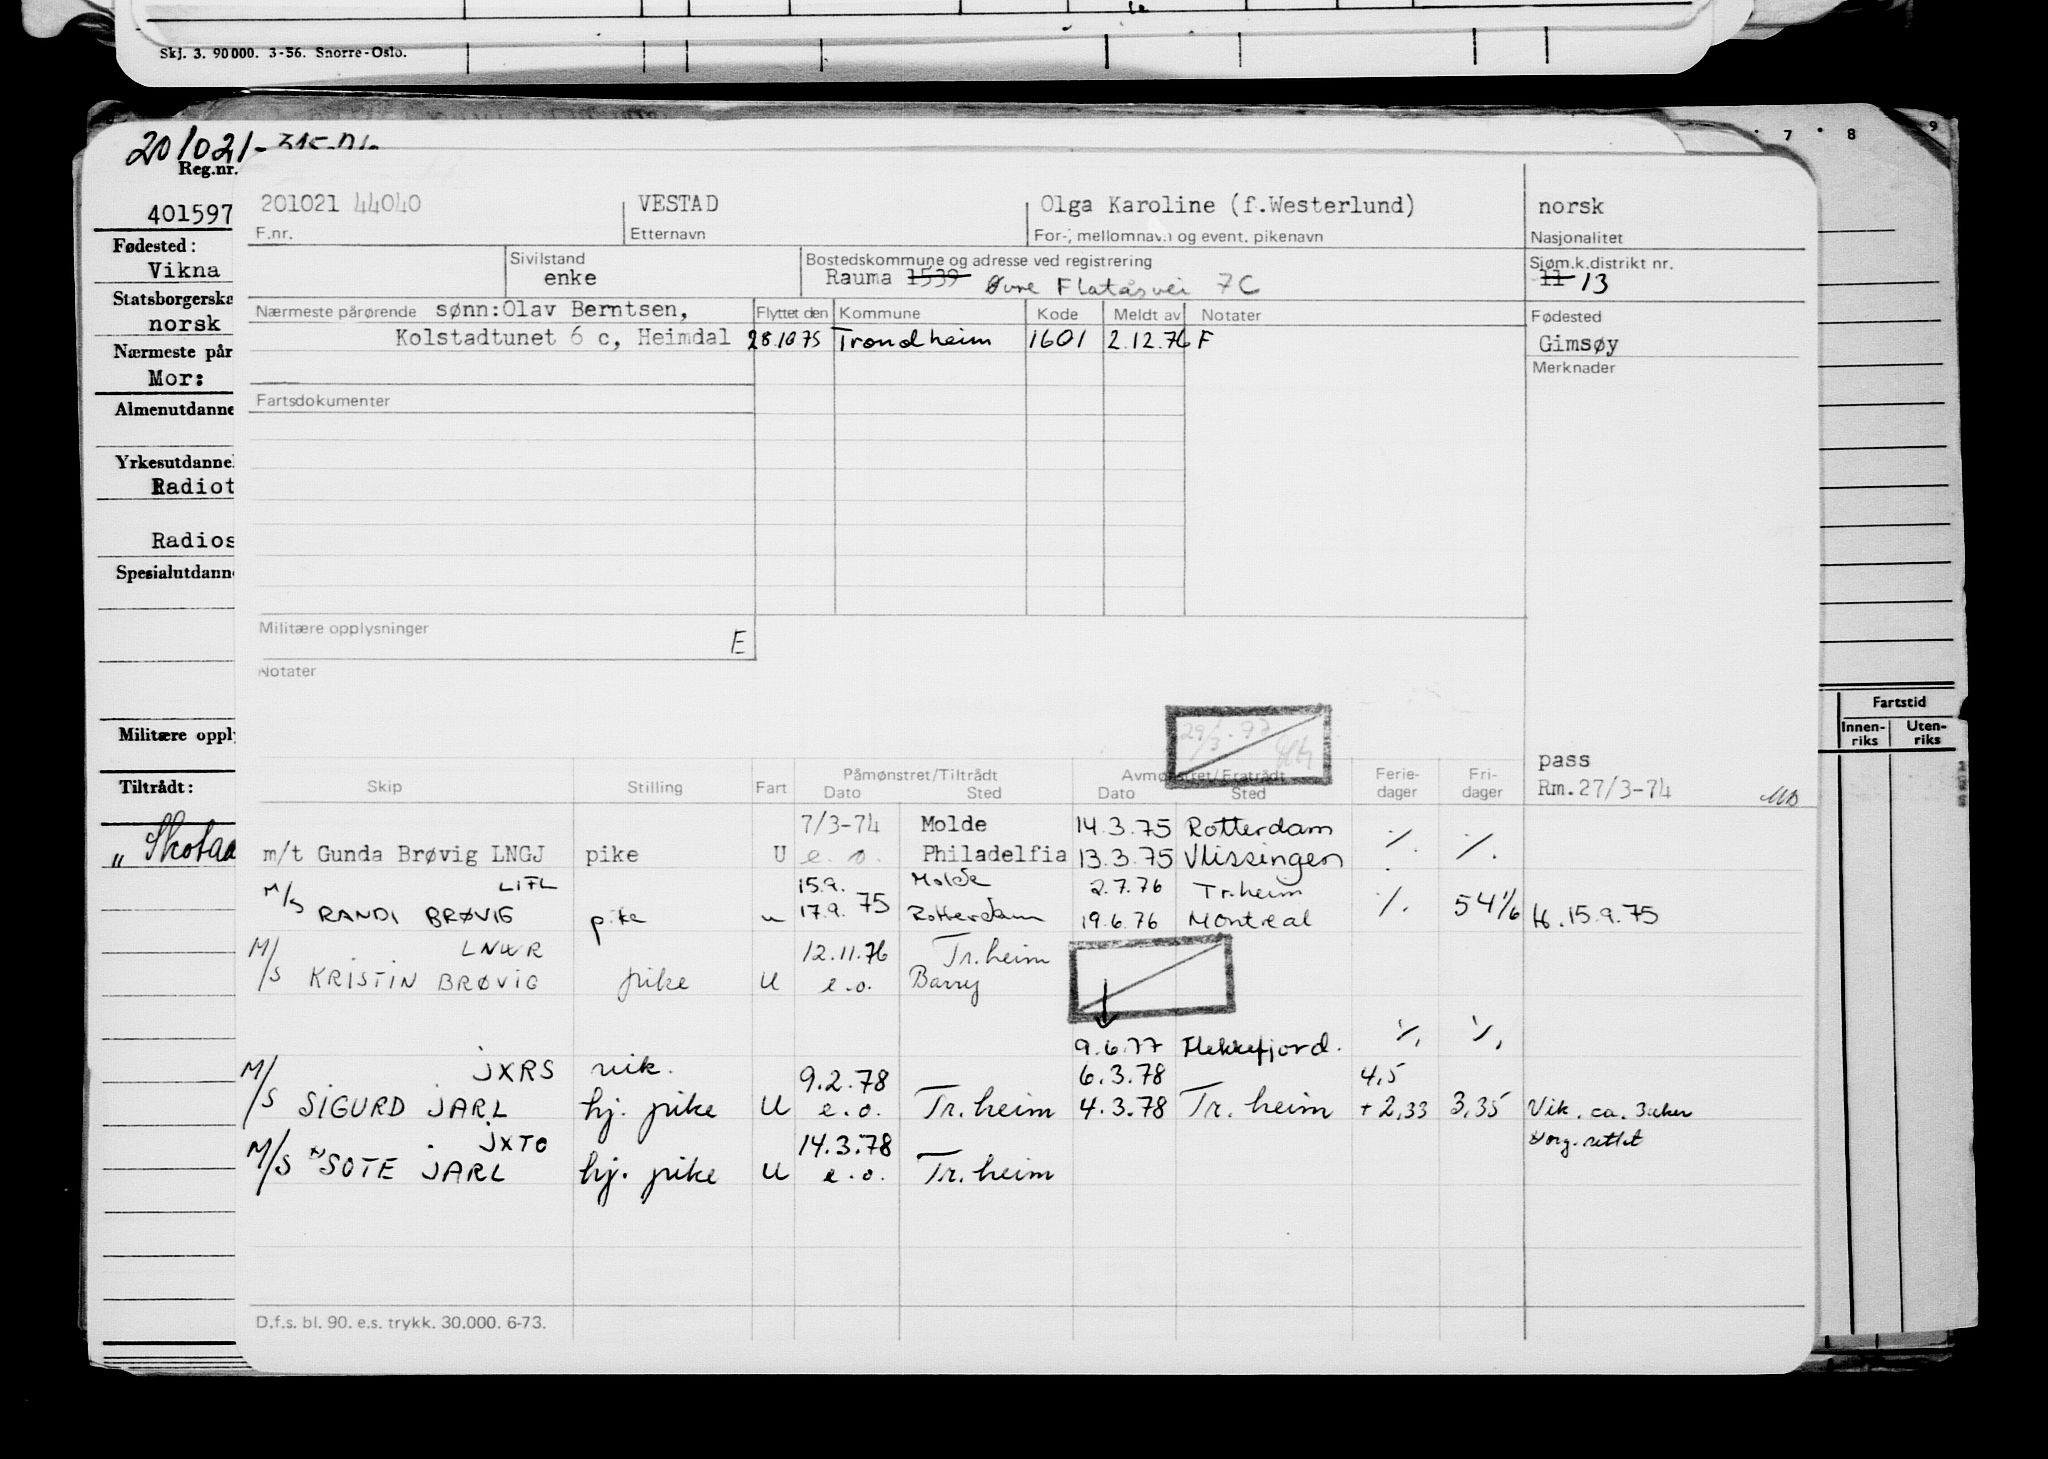 Skj. 3. 90000. 3-56. Snorre-Oslo.
7 8 9
201021-
Reg.nr.
401597
Fødested:
Vikna
Statsborgerska
norsk
Nærmeste pår
Mor:
Almenutdanne
Yrkesutdannel
Radiot
Radios
Spesialutdann
Militære oppl
Tiltrådt:
Fartstid
Innen-riks Uten-riks
201021 44040 VESTAD Olga Karoline (f.Westerlund) norsk
F.nr. Etternavn For-, mellomnavn og event. pikenavn Nasjonalitet
Sivilstand Bostedskommune og adresse ved registrering Sjøm.k.distrikt nr.
enke Rauma 1539 Øvre Flatåsvei 7C 11 13
Nærmeste pårørende sønn:Olav Berntsen, Flyttet den Kommune Kode Meldt av Notater Fødested
Kolstadtunet 6 c, Heimdal 28.10 75 Trondheim 1601 2.12.76 F Gimsøy
Merknader
Fartsdokumenter
Militære opplysninger E
Notater
29/3-97
pass
Påmønstret/Tiltrådt Avmønstret/Fratrådt Ferie- Fri-
Skip Stilling Fart Dato Sted Dato Sted dager dager Rm.27/3-74
7/3-74 Molde 14.3.75 Rotterdam
m/t Gunda Brøvig LNGJ pike U e.o. Philadelfia 13.3.75 Vlissingen ./. ./.
M/S LIFL 15.9. Molde 2.7.76 Tr.heim
RANDI BRØVIG pike u 17.9. 75 Rotterdam 19.6.76 Montreal ./. 54 1/6 H. 15.9.75
M/S LNWR 12.11.76 Tr.heim
KRISTIN BRØVIG pike U e.o. Barry
9.6.77 Flekkefjord. ./. ./.
M/S JXRS vik. 9.2.78 6.3.78 4,5
SIGURD JARL hj. pike U e.o. Tr.heim 4.3.78 Tr.heim +2,33 3,35 Vik. ca. 3uker
M/S JXTO 14.3.78
"SOTE JARL hj. pike U e.o. Tr.heim
D.f.s. bl. 90. e.s. trykk. 30.000. 6-73.